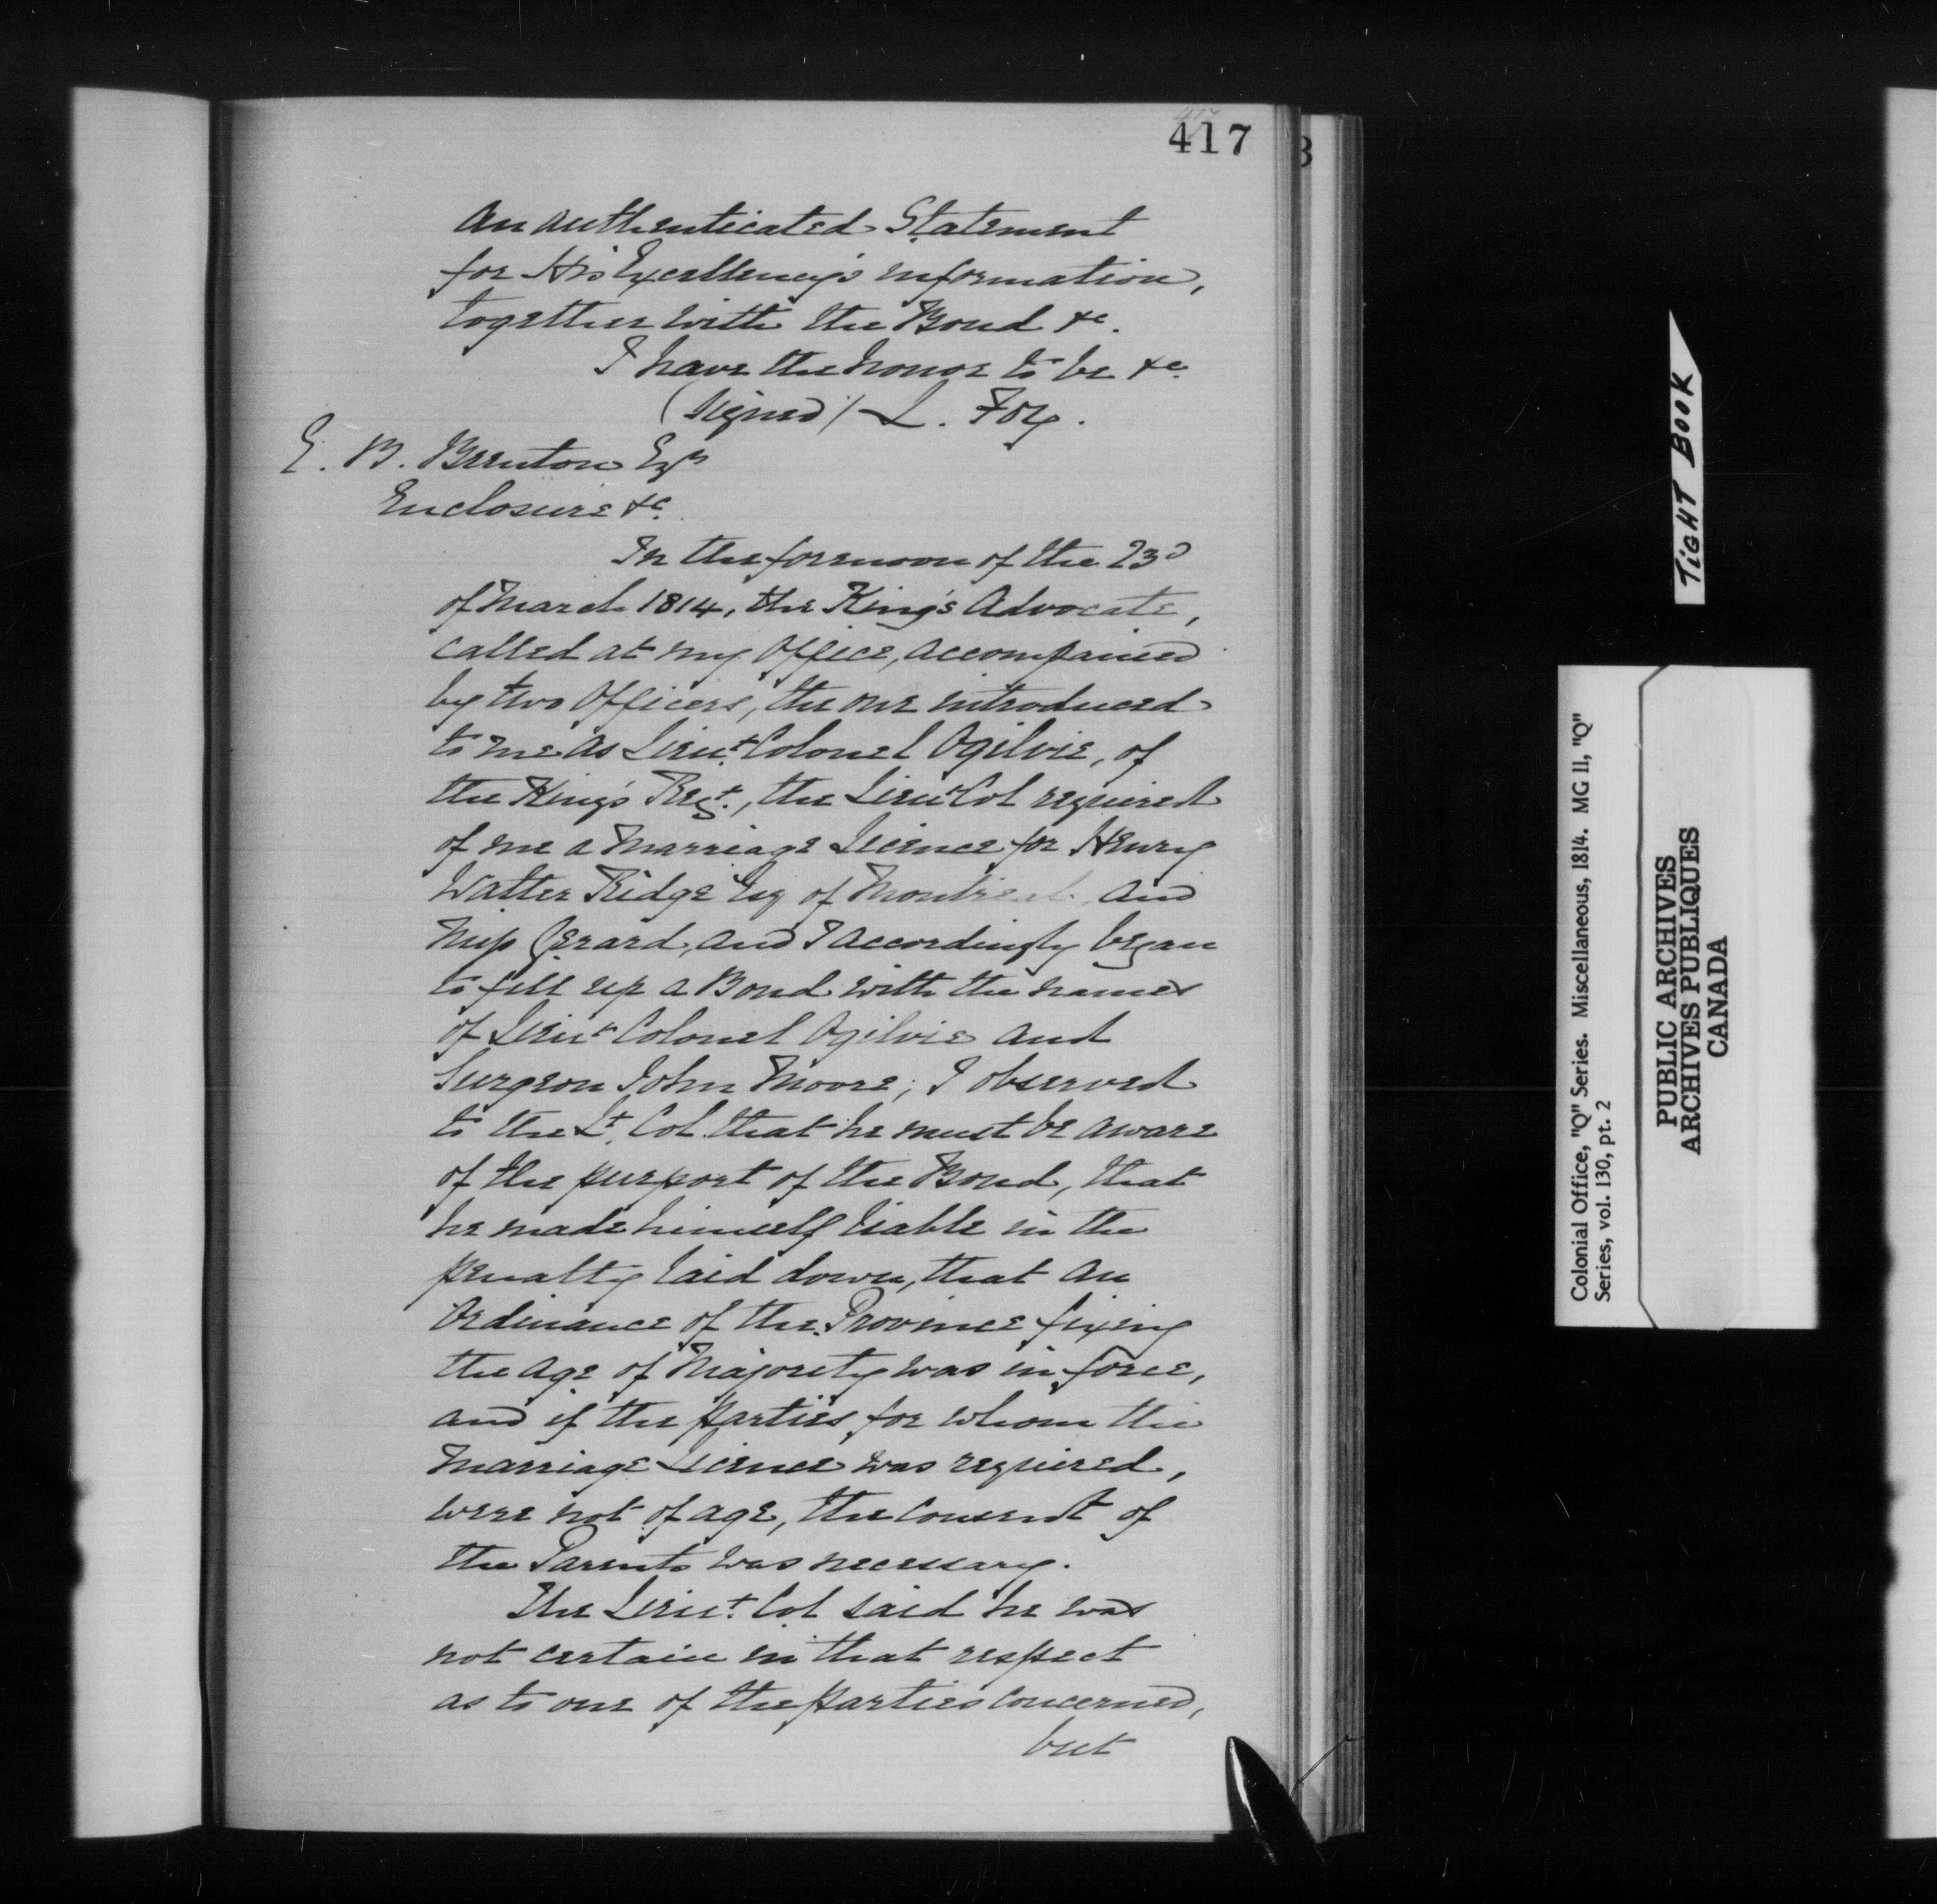 417
417
8
An authenticated Statement
for His Excellency's information,
together with the Bond &c.
I have the honor to be &c.
(Signed) L. Foy.
E. B. Brenton Esqr
Enclosure &c.
In the forenoon of the 23d
of March 1814, the King's Advocate,
called at my Office, accompanied
by two Officers, the one introduced
to me as Lieut. Colonel Ogilvie, of
the King's Regt., the Lieut Col required
of me a Marriage Licence for Henry
Walter Ridge Esq of Montreal and
Miss Gerard, and I accordingly began
to fill up a Bond with the names
of Lieut Colonel Ogilvie and
Surgeon John Moore; I observed
to the Lt. Col. that he must be aware
of the purport of the Bond, that
he made himself liable in the
penalty laid down, that an
Ordinance of the Province fixing
the age of Majority was in force,
and if the parties for whom the
Marriage Licence was required,
were not of age, the consent of
the Parents was necessary.
The Lieut. Col said he was
not certain in that respect
as to one of the parties concerned,
but
TIGHT BOOK
Colonial Office, "Q" Series. Miscellaneous, 1814. MG 11, "Q"
Series, vol. 130, pt. 2
PUBLIC ARCHIVES
ARCHIVES PUBLIQUES
CANADA